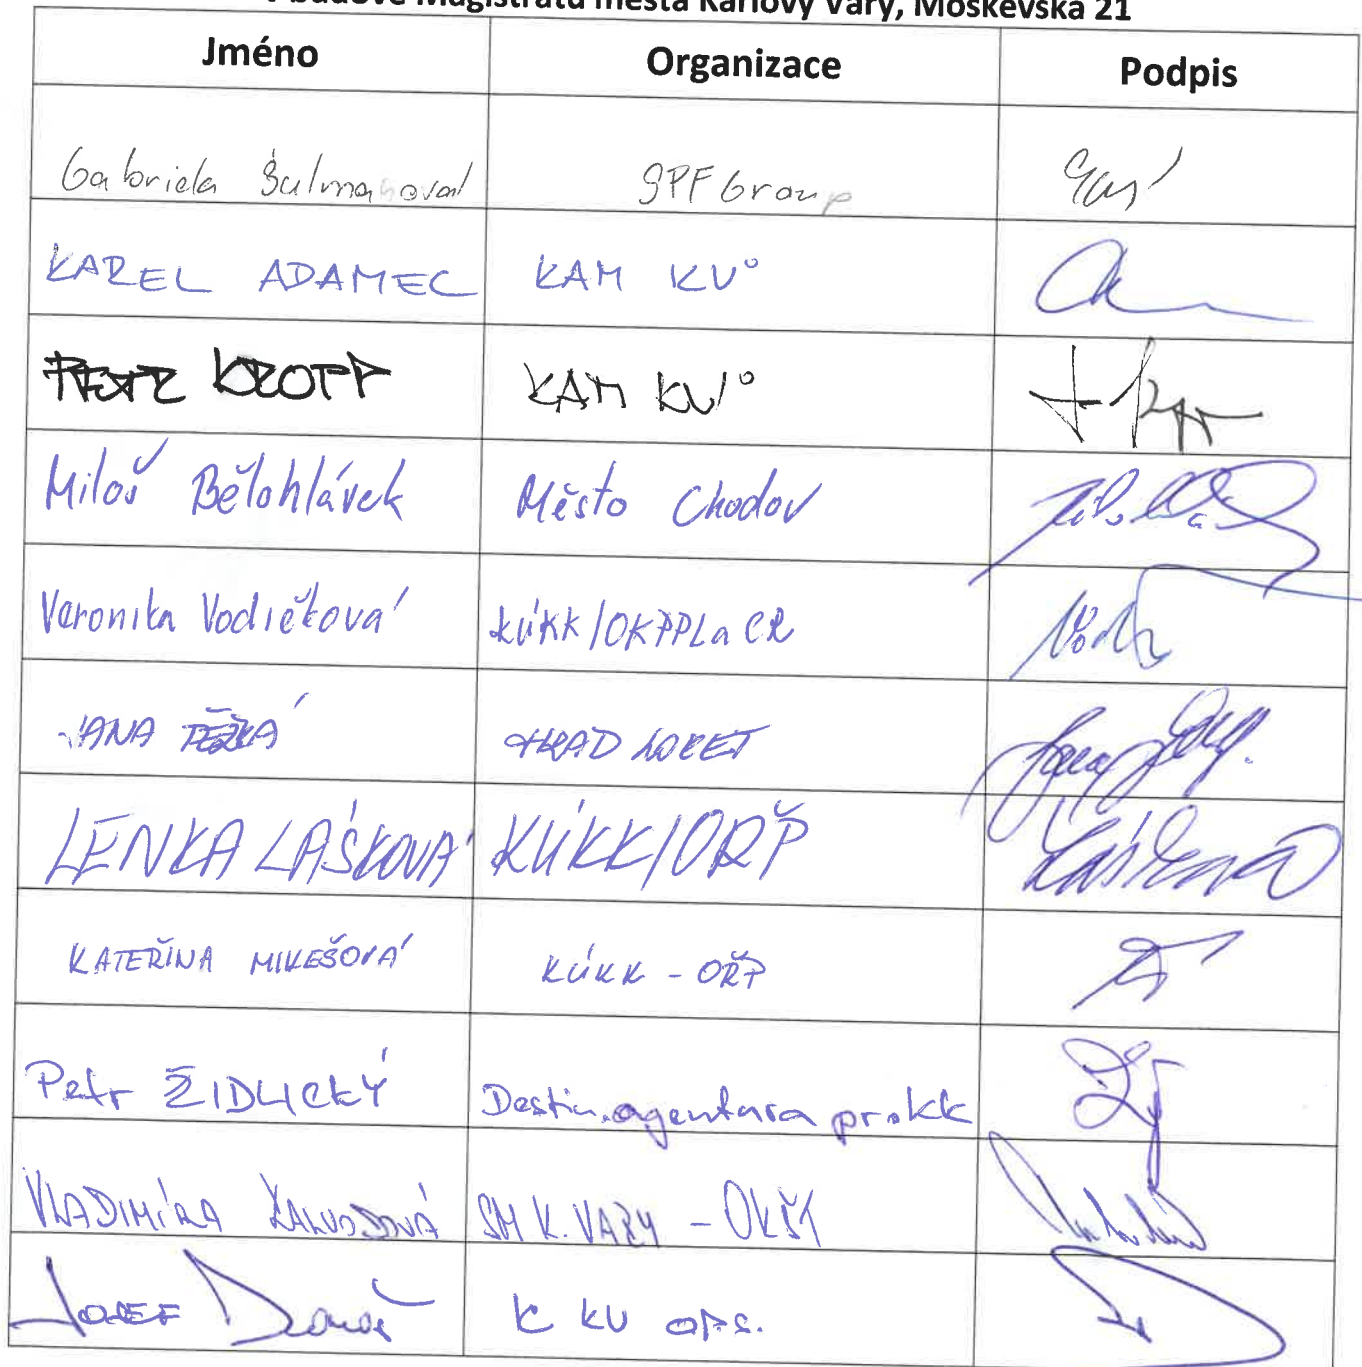 v budově Magistrátu města Karlovy Vary, Moskevská 21
Jméno Organizace Podpis
Gabriela SPF Group
KAREL ADAMEC KAM KV°
PETR KROPP KAM KV°
Miloš Bělohlávek Město Chodov
Veronika Vodičková KÚKK/OKPPLaCR
JANA TĚŽKÁ HRAD LOKET
LENKA LÁŠKOVÁ KÚKK/ORP Lášková
KATEŘINA MIKEŠOVÁ KÚKK - OŘP
Petr ŽIDLICKÝ Destin. agentura pro KK
VLADIMÍRA SM K. VARY - OKŠT
JOSEF K KV OPS.